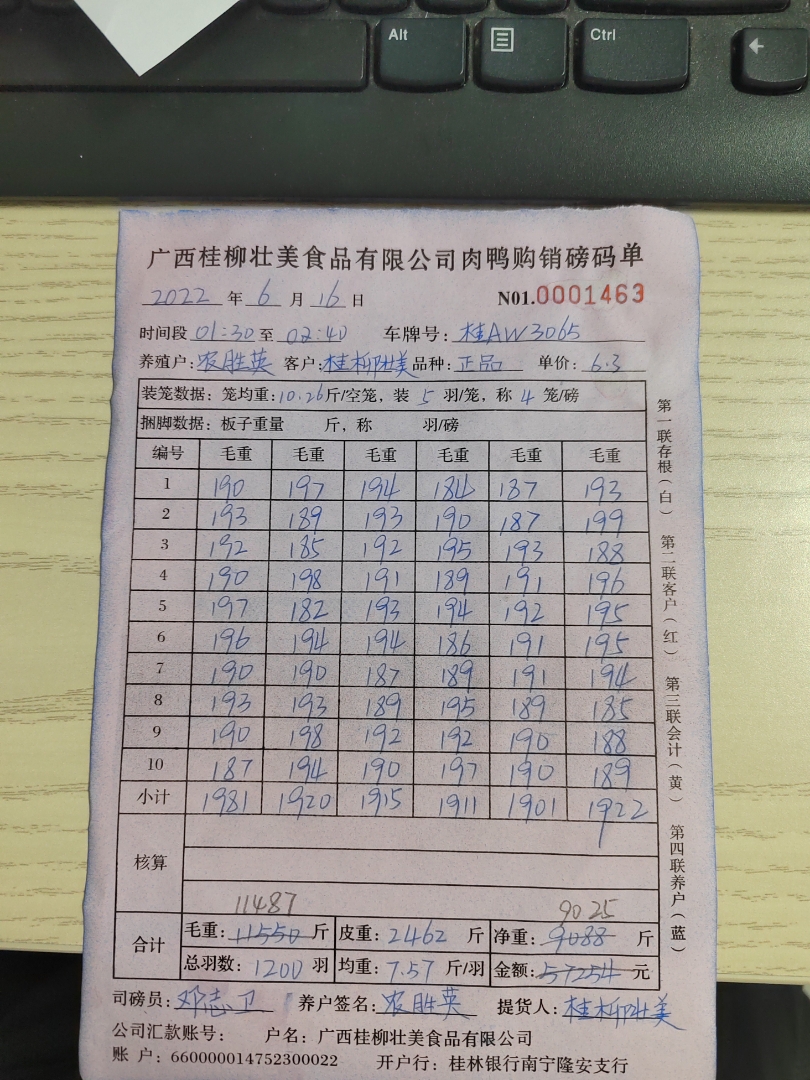 Alt
Ctrl
广西桂柳壮美食品有限公司肉鸭购销磅码单
2022 年 6 月 16 日 N01.0001463
时间段 01:30 至 02:40 车牌号: 桂AW3065
养殖户: 农胜英 客户: 桂柳壮美 品种: 正品 单价: 6.3
装笼数据: 笼均重: 10.26 斤/空笼, 装 5 羽/笼, 称 4 笼/磅
捆脚数据: 板子重量 斤, 称 羽/磅
编号 毛重 毛重 毛重 毛重 毛重 毛重
1 190 197 194 184 187 193
2 193 189 193 190 187 199
3 192 185 192 195 193 188
4 190 198 191 189 191 196
5 197 182 193 194 192 195
6 196 194 194 186 191 195
7 190 190 187 189 191 194
8 193 193 189 195 189 185
9 190 198 192 192 190 188
10 187 194 190 197 190 189
小计 1981 1920 1915 1911 1901 1922
核算
11487 9025
合计 毛重: 11550 斤 皮重: 2462 斤 净重: 9088 斤
总羽数: 1200 羽 均重: 7.57 斤/羽 金额: 57254 元
司磅员: 邓志卫 养户签名: 农胜英 提货人: 桂柳壮美
公司汇款账号: 户名: 广西桂柳壮美食品有限公司
账 户: 660000014752300022 开户行: 桂林银行南宁隆安支行
第一联存根(白) 第二联客户(红) 第三联会计(黄) 第四联养户(蓝)